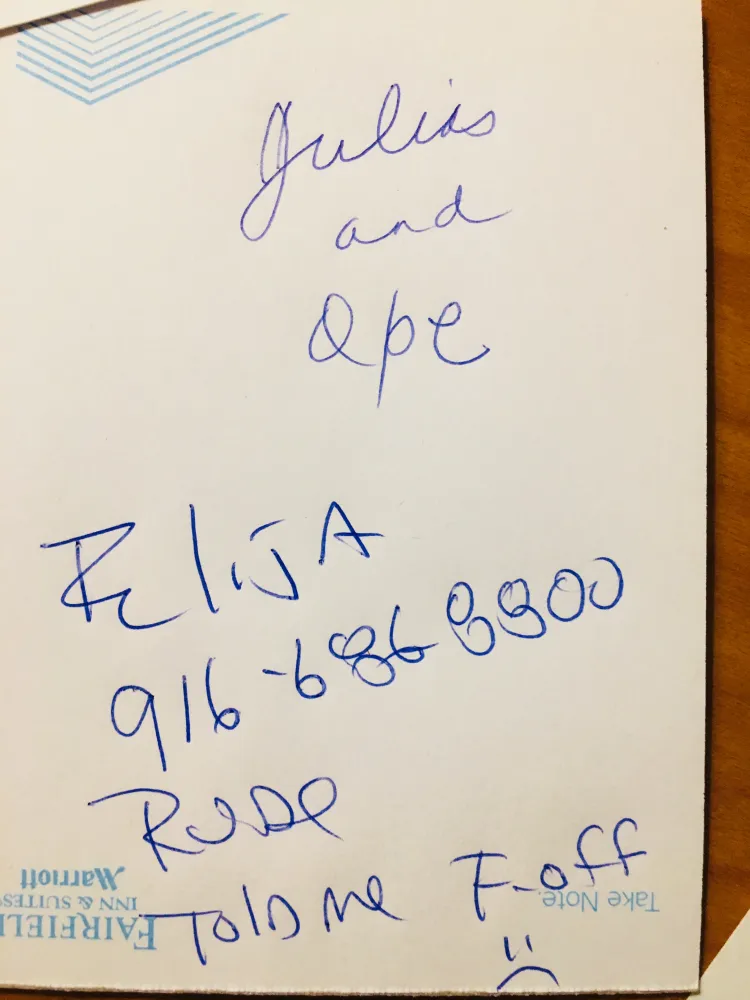 Julias
and
Ope
Elija
916-686 8800
Rude
Told me F-off
Take Note.
FAIRFIEL
INN & SUITES
Marriott